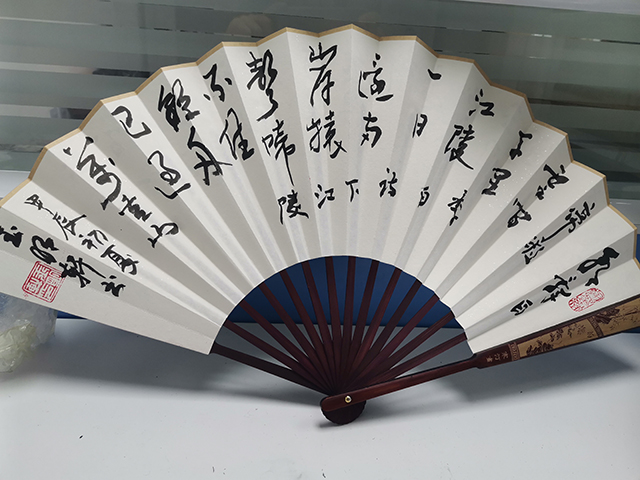 朝辞白
帝彩
云间
千里
江陵
一日
還两
岸猿
聲啼
不住
轻舟
已过
万重山
李白诗下江陵
甲辰初夏
轩书